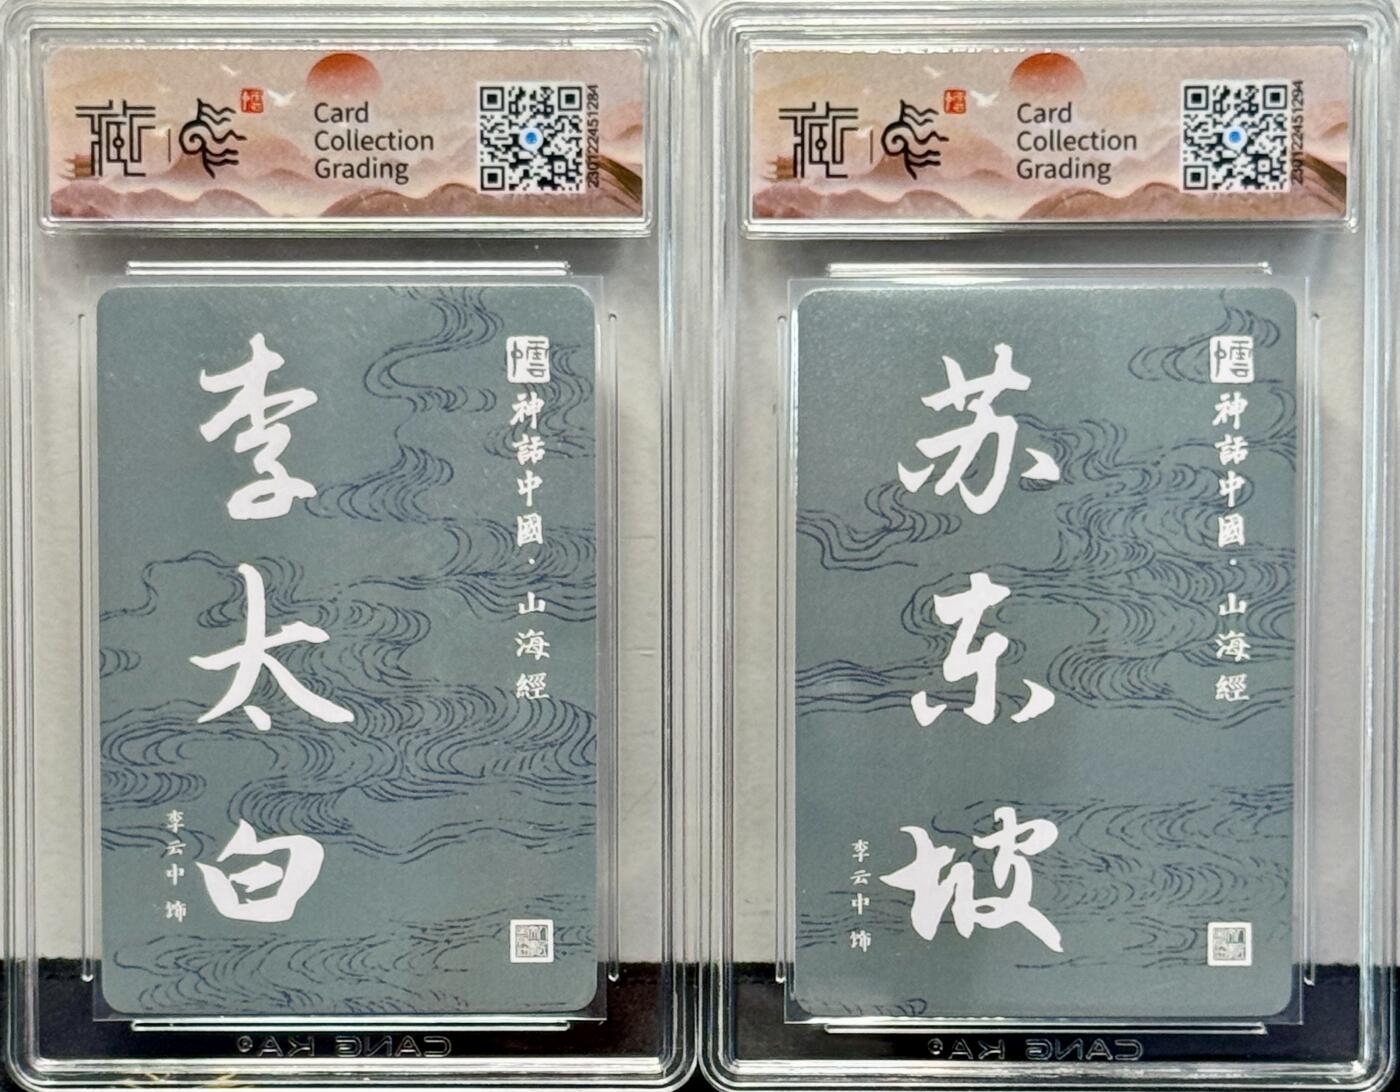 藏
Card
Collection
Grading
2301224451284
李太白
神話中國·山海經
李云中 饰
CANG KA
藏
Card
Collection
Grading
2301224451294
苏东坡
神話中國·山海經
李云中 饰
CANG KA